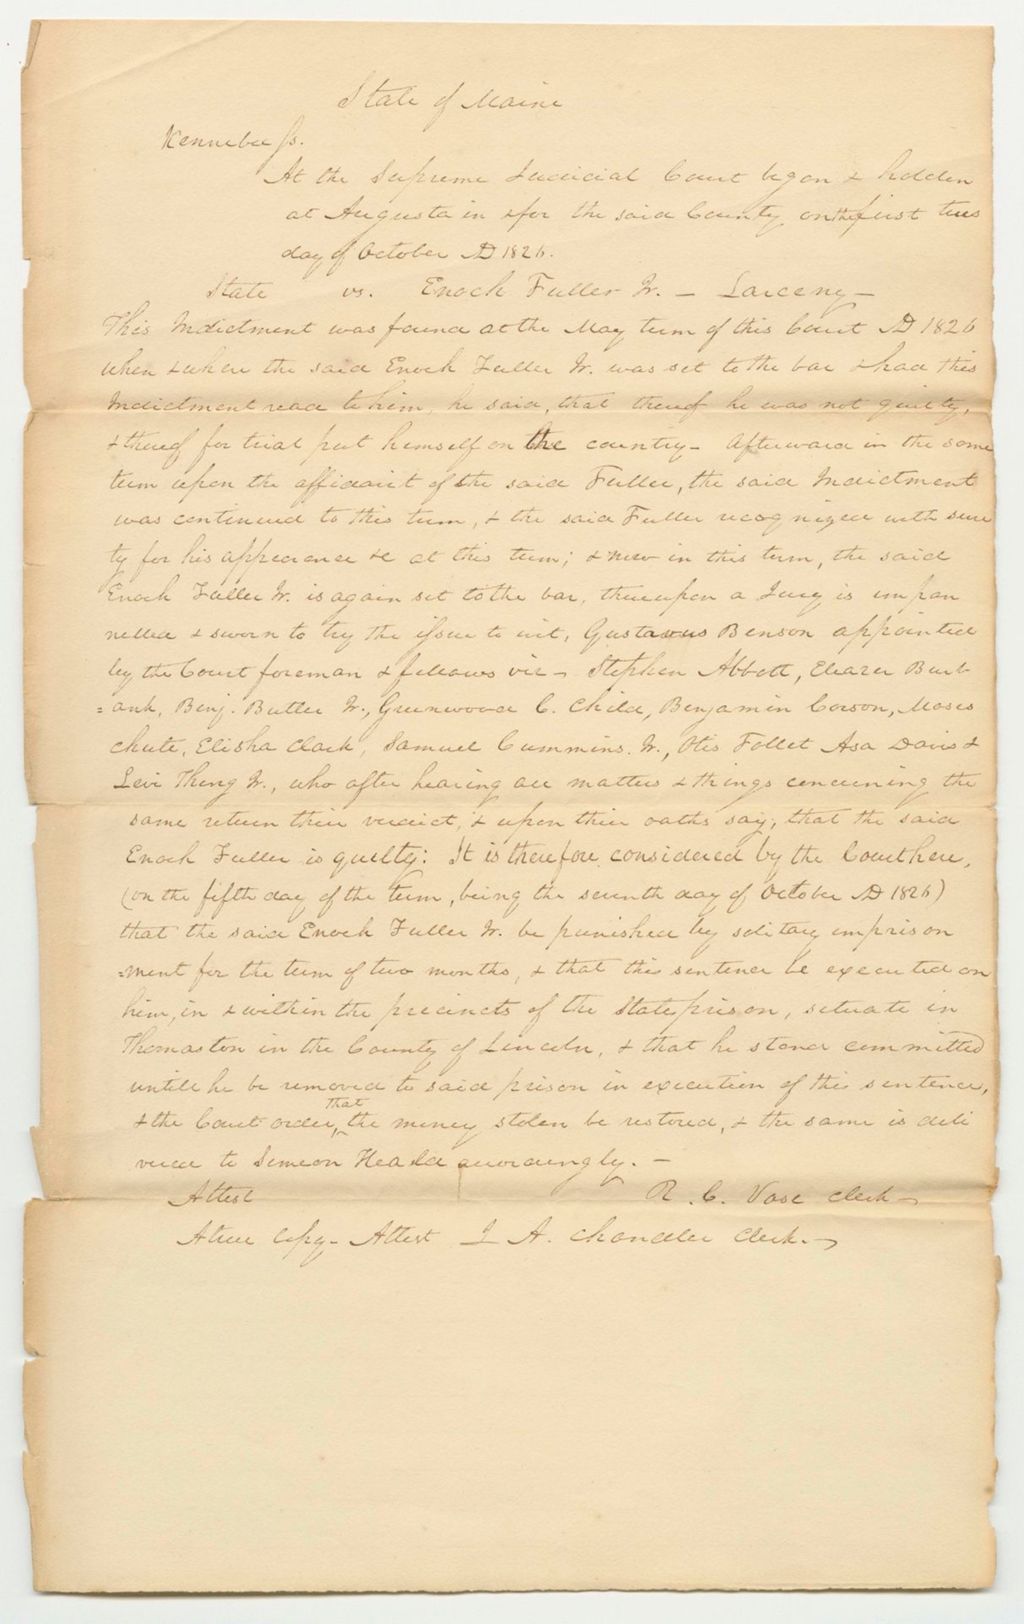 State of Maine
Kennebec ss.
At the Supreme Judicial Court begon & holden
at Augusta in & for the said County on the first tues
day of October AD 1826.
State vs. Enoch Fuller Jr. — Larceny —
This Indictment was found at the May term of this Court AD 1826
when & where the said Enoch Fuller Jr. was set to the bar & had this
Indictment read to him, he said, that thereof he was not guilty,
& thereof for trial put himself on the country — Afterward in the same
term upon the affidavit of the said Fuller, the said Indictment
was continued to this term, & the said Fuller recognized with sure
ty for his appearance &c at this term; & now in this term, the said
Enoch Fuller Jr. is again set to the bar, thereupon a Jury is impan
nelled & sworn to try the issue to wit, Gustavus Benson appointed
by the Court foreman & fellows viz — Stephen Abbott, Eleazer Burb
=ank, Benj. Butler Jr., Greenwood C. Child, Benjamin Corson, Moses
Chute, Elisha Clark, Samuel Cummins. Jr., Otis Follet Asa Davis &
Levi Thing Jr., who after hearing all matters & things concerning the
same return their verdict, & upon their oaths say, that the said
Enoch Fuller is guilty: It is therefore considered by the Court here,
(on the fifth day of the term, being the seventh day of October AD 1826)
that the said Enoch Fuller Jr. be punished by solitary imprison
=ment for the term of two months, & that this sentence be executed on
him, in & within the precincts of the State prison, situate in
Thomaston in the County of Lincoln, & that he stand committed
untill he be removed to said prison in execution of this sentence,
& the Court order, that the money stolen be restored, & the same is deli
vered to Simeon Heald accordingly. —
Attest R. C. Vose Clerk
A true Copy — Attest J A. Chandler Clerk.